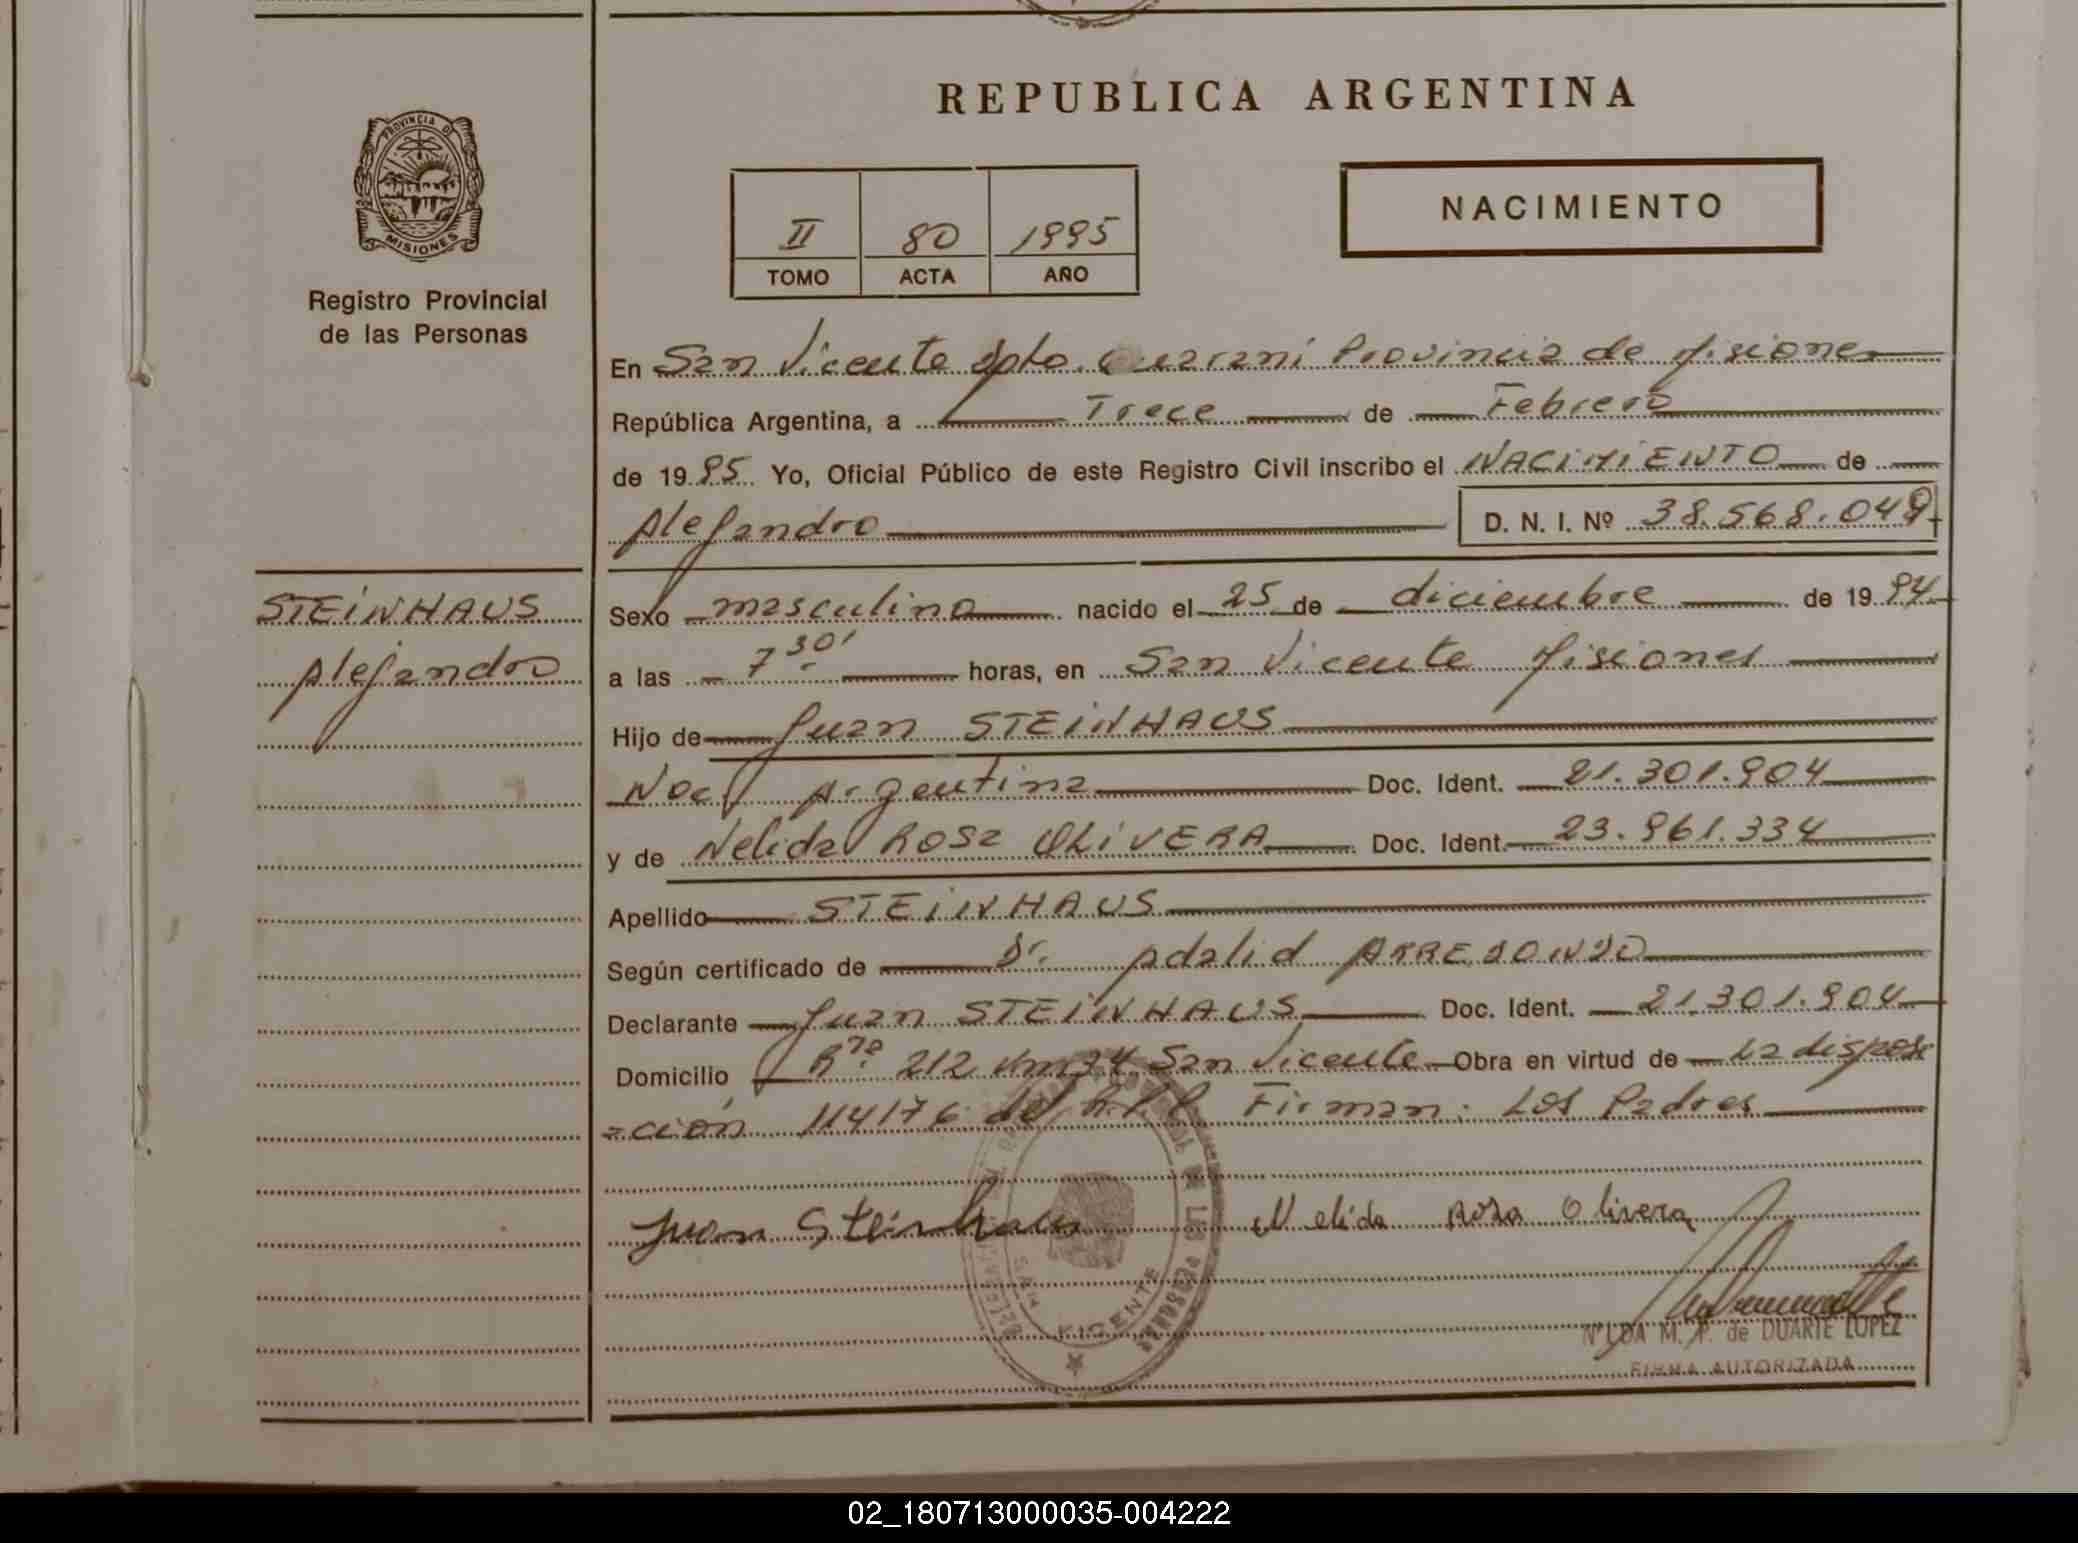 REPUBLICA ARGENTINA
PROVINCIA DE
MISIONES
Registro Provincial
de las Personas
II 80 1995
TOMO ACTA AÑO
NACIMIENTO
En San Vicente Dpto. Guarani Provincia de Misiones
República Argentina, a Trece de Febrero
de 1995 Yo, Oficial Público de este Registro Civil inscribo el NACIMIENTO de
Alejandro D. N. I. Nº 38.568.049
STEINHAUS
Alejandro
Sexo masculino nacido el 25 de diciembre de 1994
a las 7 30' horas, en San Vicente Misiones
Hijo de Juan STEINHAUS
Nac. Argentina Doc. Ident. 21.301.904
y de Nelida Rosa OLIVERA Doc. Ident. 23.961.334
Apellido STEINHAUS
Según certificado de Dr. Adalid ARREDONDO
Declarante Juan STEINHAUS Doc. Ident. 21.301.904
Domicilio Rta. 212 Km 24 San Vicente Obra en virtud de la dispos
ición 114176 del R.P.P Firman: Los Padres
Juan Steinhaus Nelida Rosa Olivera
SAN VICENTE
NILDA M. P. de DUARTE LOPEZ
FIRMA AUTORIZADA
02_180713000035-004222